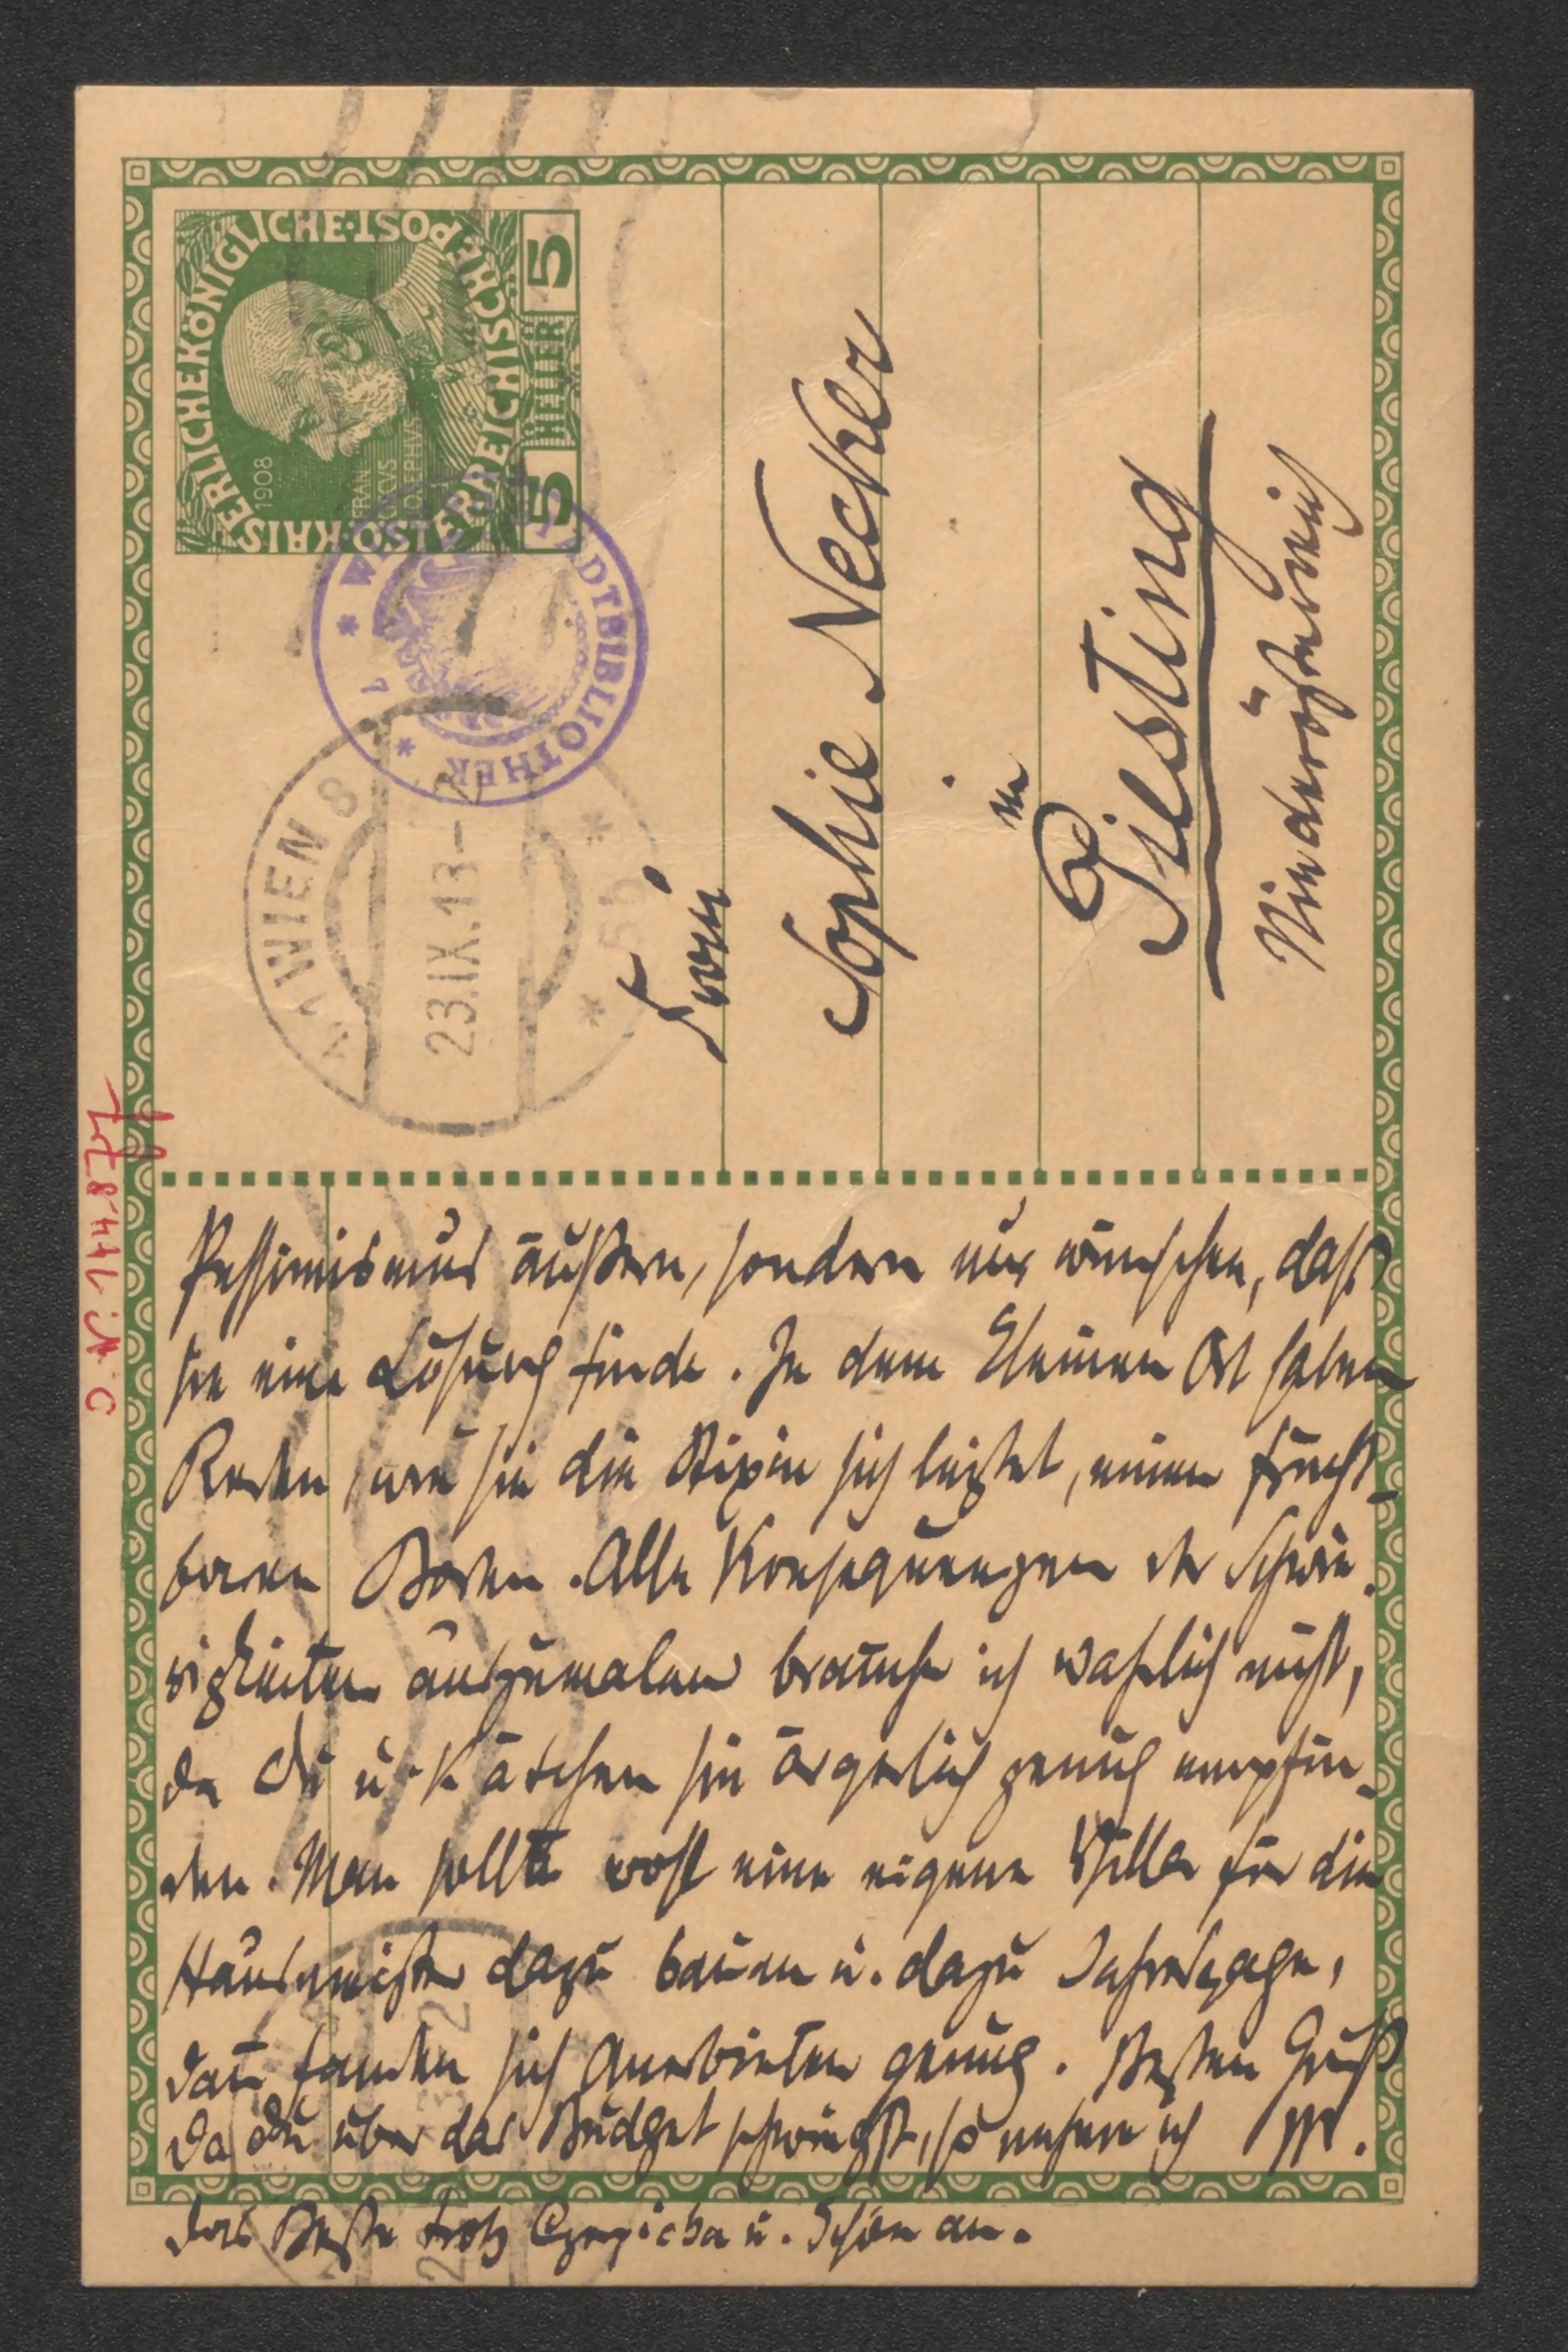 KAISERLICHE KÖNIGLICHE ÖSTERREICHISCHE POST
1908
FRAN
CISCVS
IOSEPHVS
5 HELLER 5
* WIENER STADTBIBLIOTHEK *
WIEN 8
23.IX.13
* 5b *
Frau
Sophie Necker
in
Piesting
Niederösterreich
Pessimismus äußern, sondern nur wünschen, daß
sie eine Lösung finde. In dem kleinen Ort haben
Reden, wie sie die sich leistet, einen frucht-
baren Boden. Alle Konsequenzen der Schwie-
rigkeiten auszumalen brauche ich wahrlich nicht,
da Du u. Kätchen sie ärgerlich genug empfin-
den. Man sollte wohl eine eigene Villa für die
Hausmeister dazu bauen u. dazu Jahresgage,
dann fanden sich Anerbieten genug. Besten Gruß
Da Du über das Budget schweigst, so nehme ich M.
das Beste trotz u. Schön an.